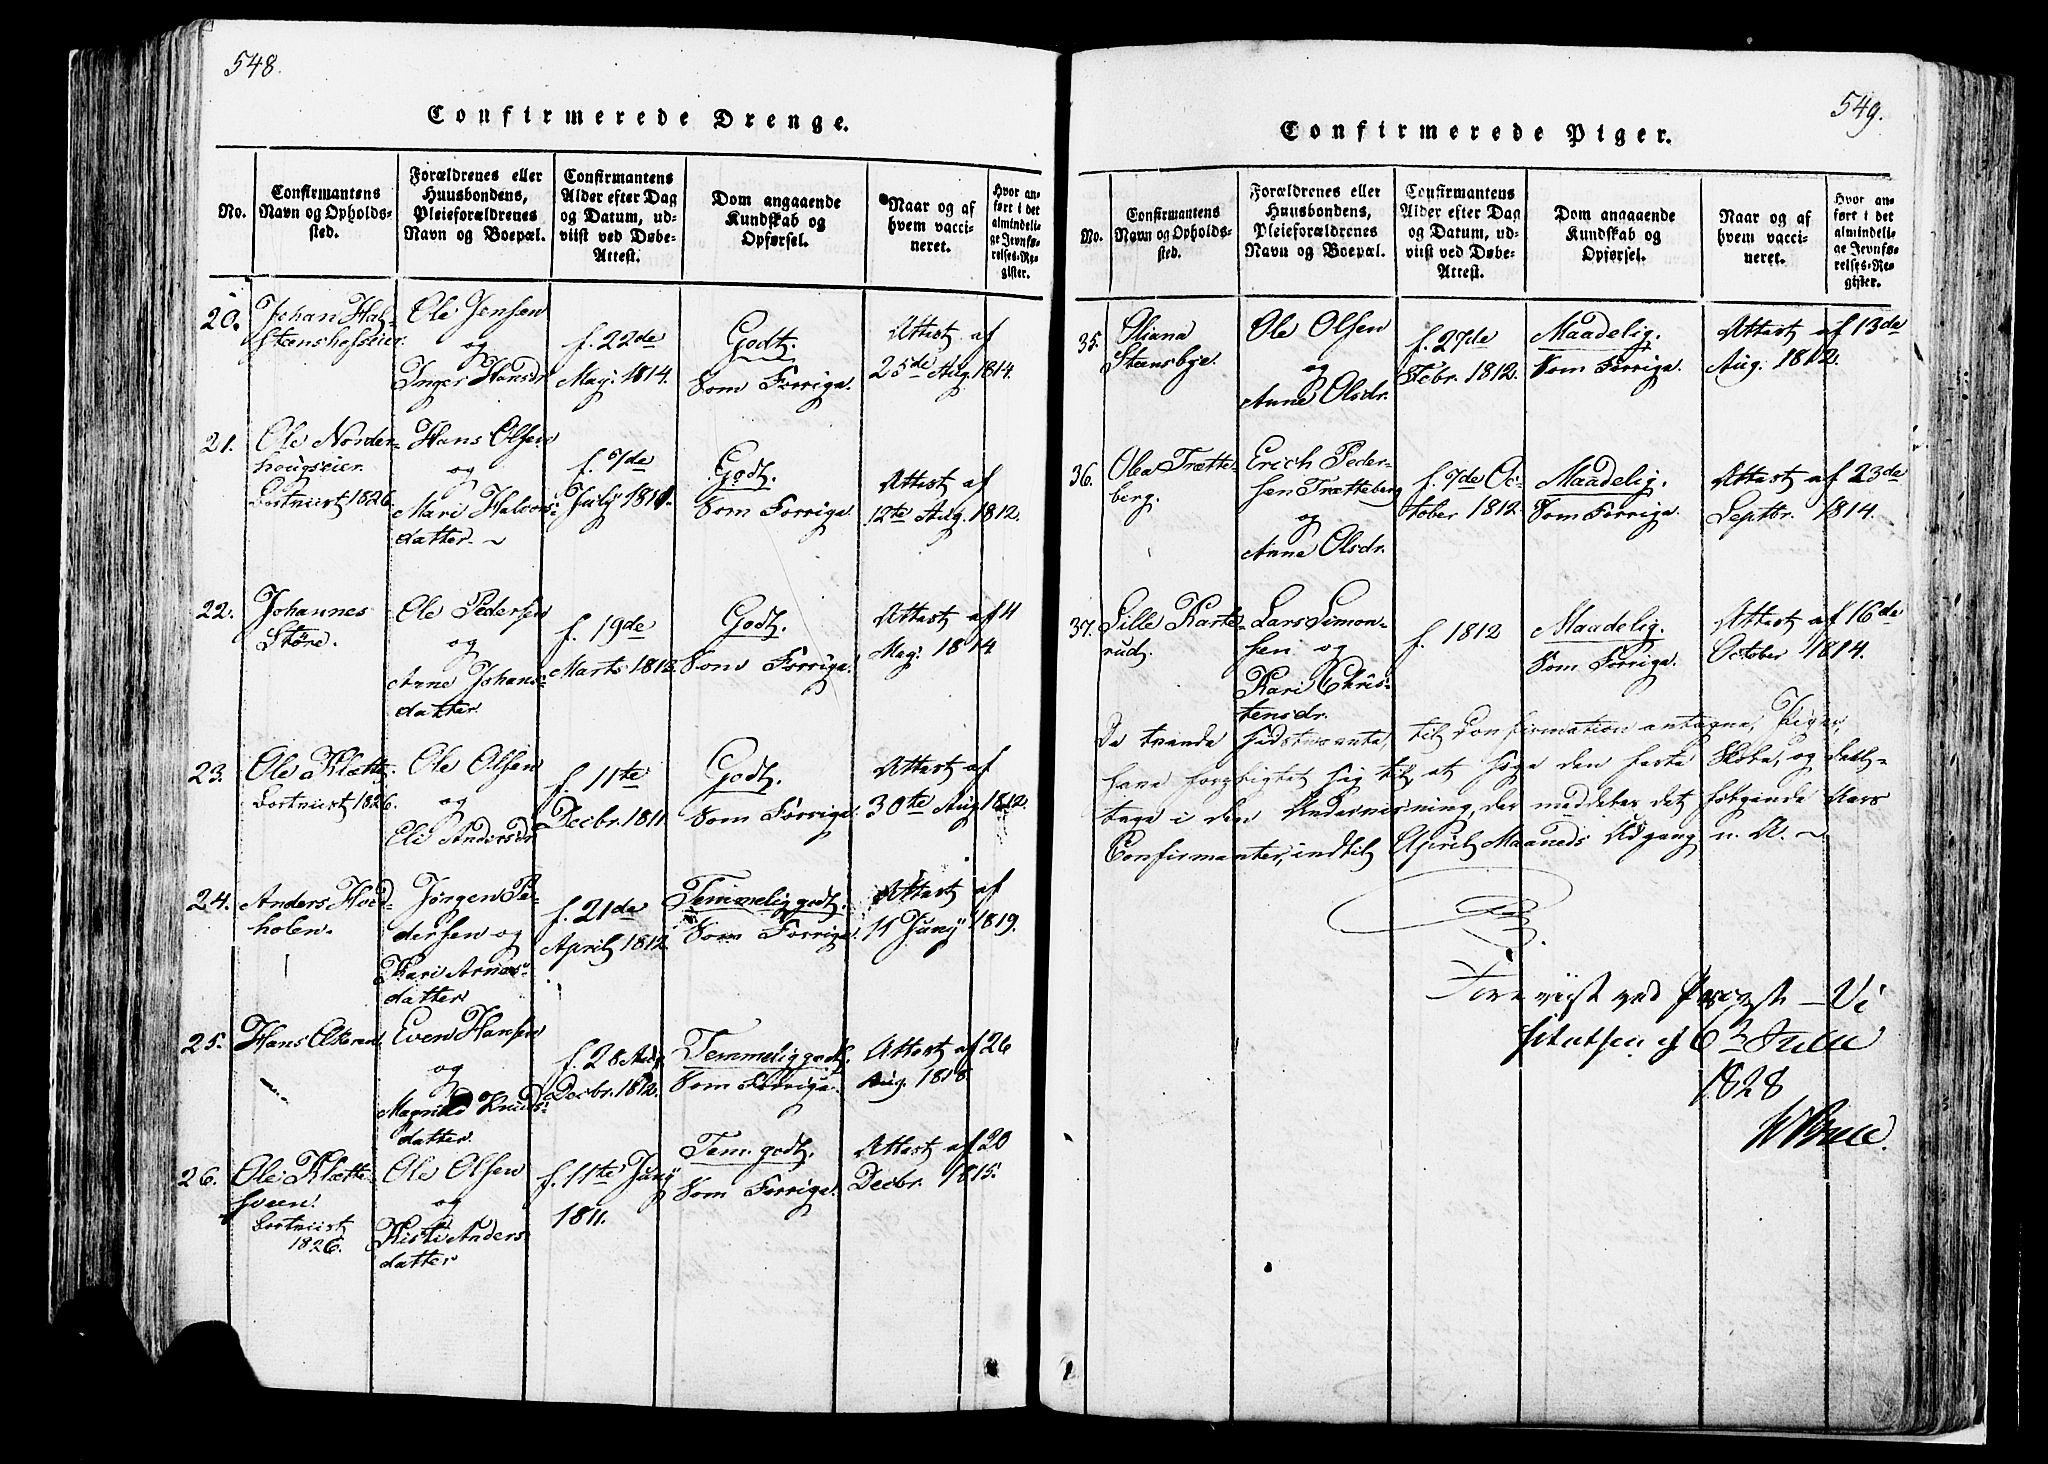 548.
Confirmerede Drenge.
No.
Confirmantens
Navn og Opholds-
sted.
Forældrenes eller
Huusbondens,
Pleieforældrenes
Navn og Boepæl.
Confirmantens
Alder efter Dag
og Datum, ud-
viist ved Døbe-
Attest.
Dom angaaende
Kundskab og
Opførsel.
Naar og af
hvem vacci-
neret.
Hvor an-
ført i det
almindeli-
ge Jevnfø-
relses-Re-
gister.
20.
Johan Hal-
steenshofseier.
Ole Jensen
og
Inger Hansdr
f. 22de
Maij. 1814.
Godt.
Som Forrige.
Attest af
25de Aug. 1814.
21.
Ole Norder-
hougseier.
Bortviist 1826.
Hans Olsen
og
Mari Halvors-
datter. ~
f. 7de
July 1811.
Godt.
Som Forrige.
Attest af
12te Aug. 1812.
22.
Johannes
Støre.
Ole Pedersen
og
Anne Johans-
datter.
f. 19de
Marts 1812.
Godt.
Som Forrige.
Attest af 4
Maj: 1814.
23.
Ole Klætte.
Bortviist 1826.
Ole Olsen
og
Eli Andersdr
f. 11te
Decbr. 1811.
Godt.
Som Forrige.
Attest af
30te Aug. 1812.
24.
Anders Hved-
holen.
Jørgen Pe-
dersen og
Kari Arnes-
datter
f. 21de
April 1812.
Temmelig godt.
Som Forrige.
Attest af
11 Junij 1819.
25.
Hans
Even Hansen
og
Knuds-
datter.
f. 28
Decbr. 1812.
Temmelig godt.
Som Forrige.
Attest af 26
Aug. 1818.
26.
Ole Klætte-
sveen.
Bortviist
1826.
Ole Olsen
og
Kisti Anders
datter
f. 11te Junij
1811.
Tem. godt.
Som Forrige.
Attest af 20
Decbr. 1815.
549.
Confirmerede Piger.
No.
Confirmantens
Navn og Opholds-
sted.
Forældrenes eller
Huusbondens,
Pleieforældrenes
Navn og Boepæl.
Confirmantens
Alder efter Dag
og Datum, ud-
viist ved Døbe-
Attest.
Dom angaaende
Kundskab og
Opførsel.
Naar og af
hvem vacci-
neret.
Hvor an-
ført i det
almindeli-
ge Jevnfø-
relses-Re-
gister.
35.
Oliana
Steensbye.
Ole Olsen
og
Anne Olsdr.
f. 27de
Febr. 1812.
Maadelig.
Som Forrige.
Attest af 13de
Aug. 1812.
36.
Olea Trætte-
berg.
Erich Peder-
sen Trætteberg
og
Anne Olsdr.
f. 7de Oc-
tober 1812.
Maadelig.
Som Forrige.
Attest af 23de
Septbr. 1814.
37.
Sille Karte-
rud.
Lars Simon-
sen og
Kari Chris-
tensdr.
f. 1812
Maadelig.
Som Forrige.
Attest af 16de
October 1814.
De tvende sidstnævnte, til Confirmation antagne, Piger,
have forpligtet sig til at søge den faste Skole, og deel-
tage i den Underviisning, der meddeles det følgende Aars
Confirmanter, indtil April Maaneds Udgang n. A. ~
Foreviist ved Provste-Vi
sitatsen d 6
1828